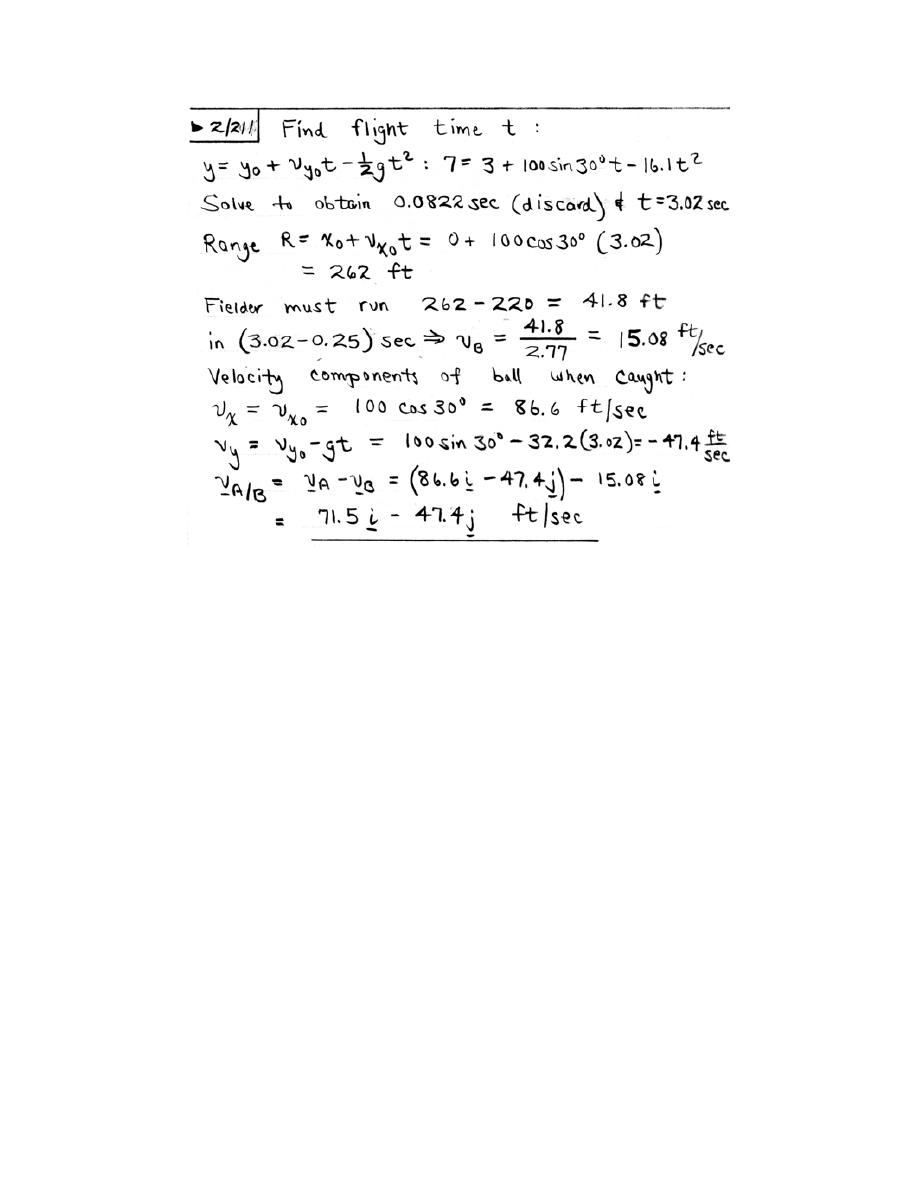 ▸ 2/211 Find flight time t :
y = y₀ + v_y₀t - ½gt² : 7 = 3 + 100 sin 30° t - 16.1t²
Solve to obtain 0.0822 sec (discard) & t = 3.02 sec
Range R = x₀ + v_x₀t = 0 + 100 cos 30° (3.02)
= 262 ft
Fielder must run 262 - 220 = 41.8 ft
in (3.02 - 0.25) sec ⇒ v_B = 41.8/2.77 = 15.08 ft/sec
Velocity components of ball when caught :
v_x = v_x₀ = 100 cos 30° = 86.6 ft/sec
v_y = v_y₀ - gt = 100 sin 30° - 32.2(3.02) = -47.4 ft/sec
v_A/B = v_A - v_B = (86.6i - 47.4j) - 15.08i
= 71.5i - 47.4j ft/sec